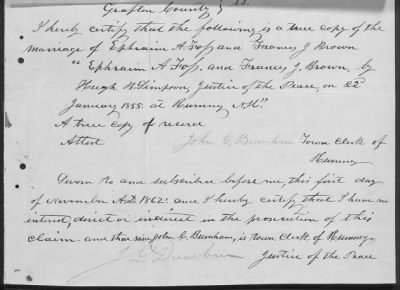 Grafton County } ss.
I hereby certify that the following is a true copy of the
marriage of Ephraim A. Foss and Frances J. Brown
"Ephraim A. Foss, and Frances J. Brown, by
Hugh B. Simpson, Justice of the Peace, on 22d
January 1855. at Rumney N.H."
A true copy of record
Attest John C. Burnham Town Clerk of
Rumney
Sworn to and subscribed before me, this first day
of November A.D. 1862. and I hereby certify that I have no
interest, direct or indirect in the prosecution of this
claim. and that said John C. Burnham, is town Clerk of Rumney.
Justice of the Peace